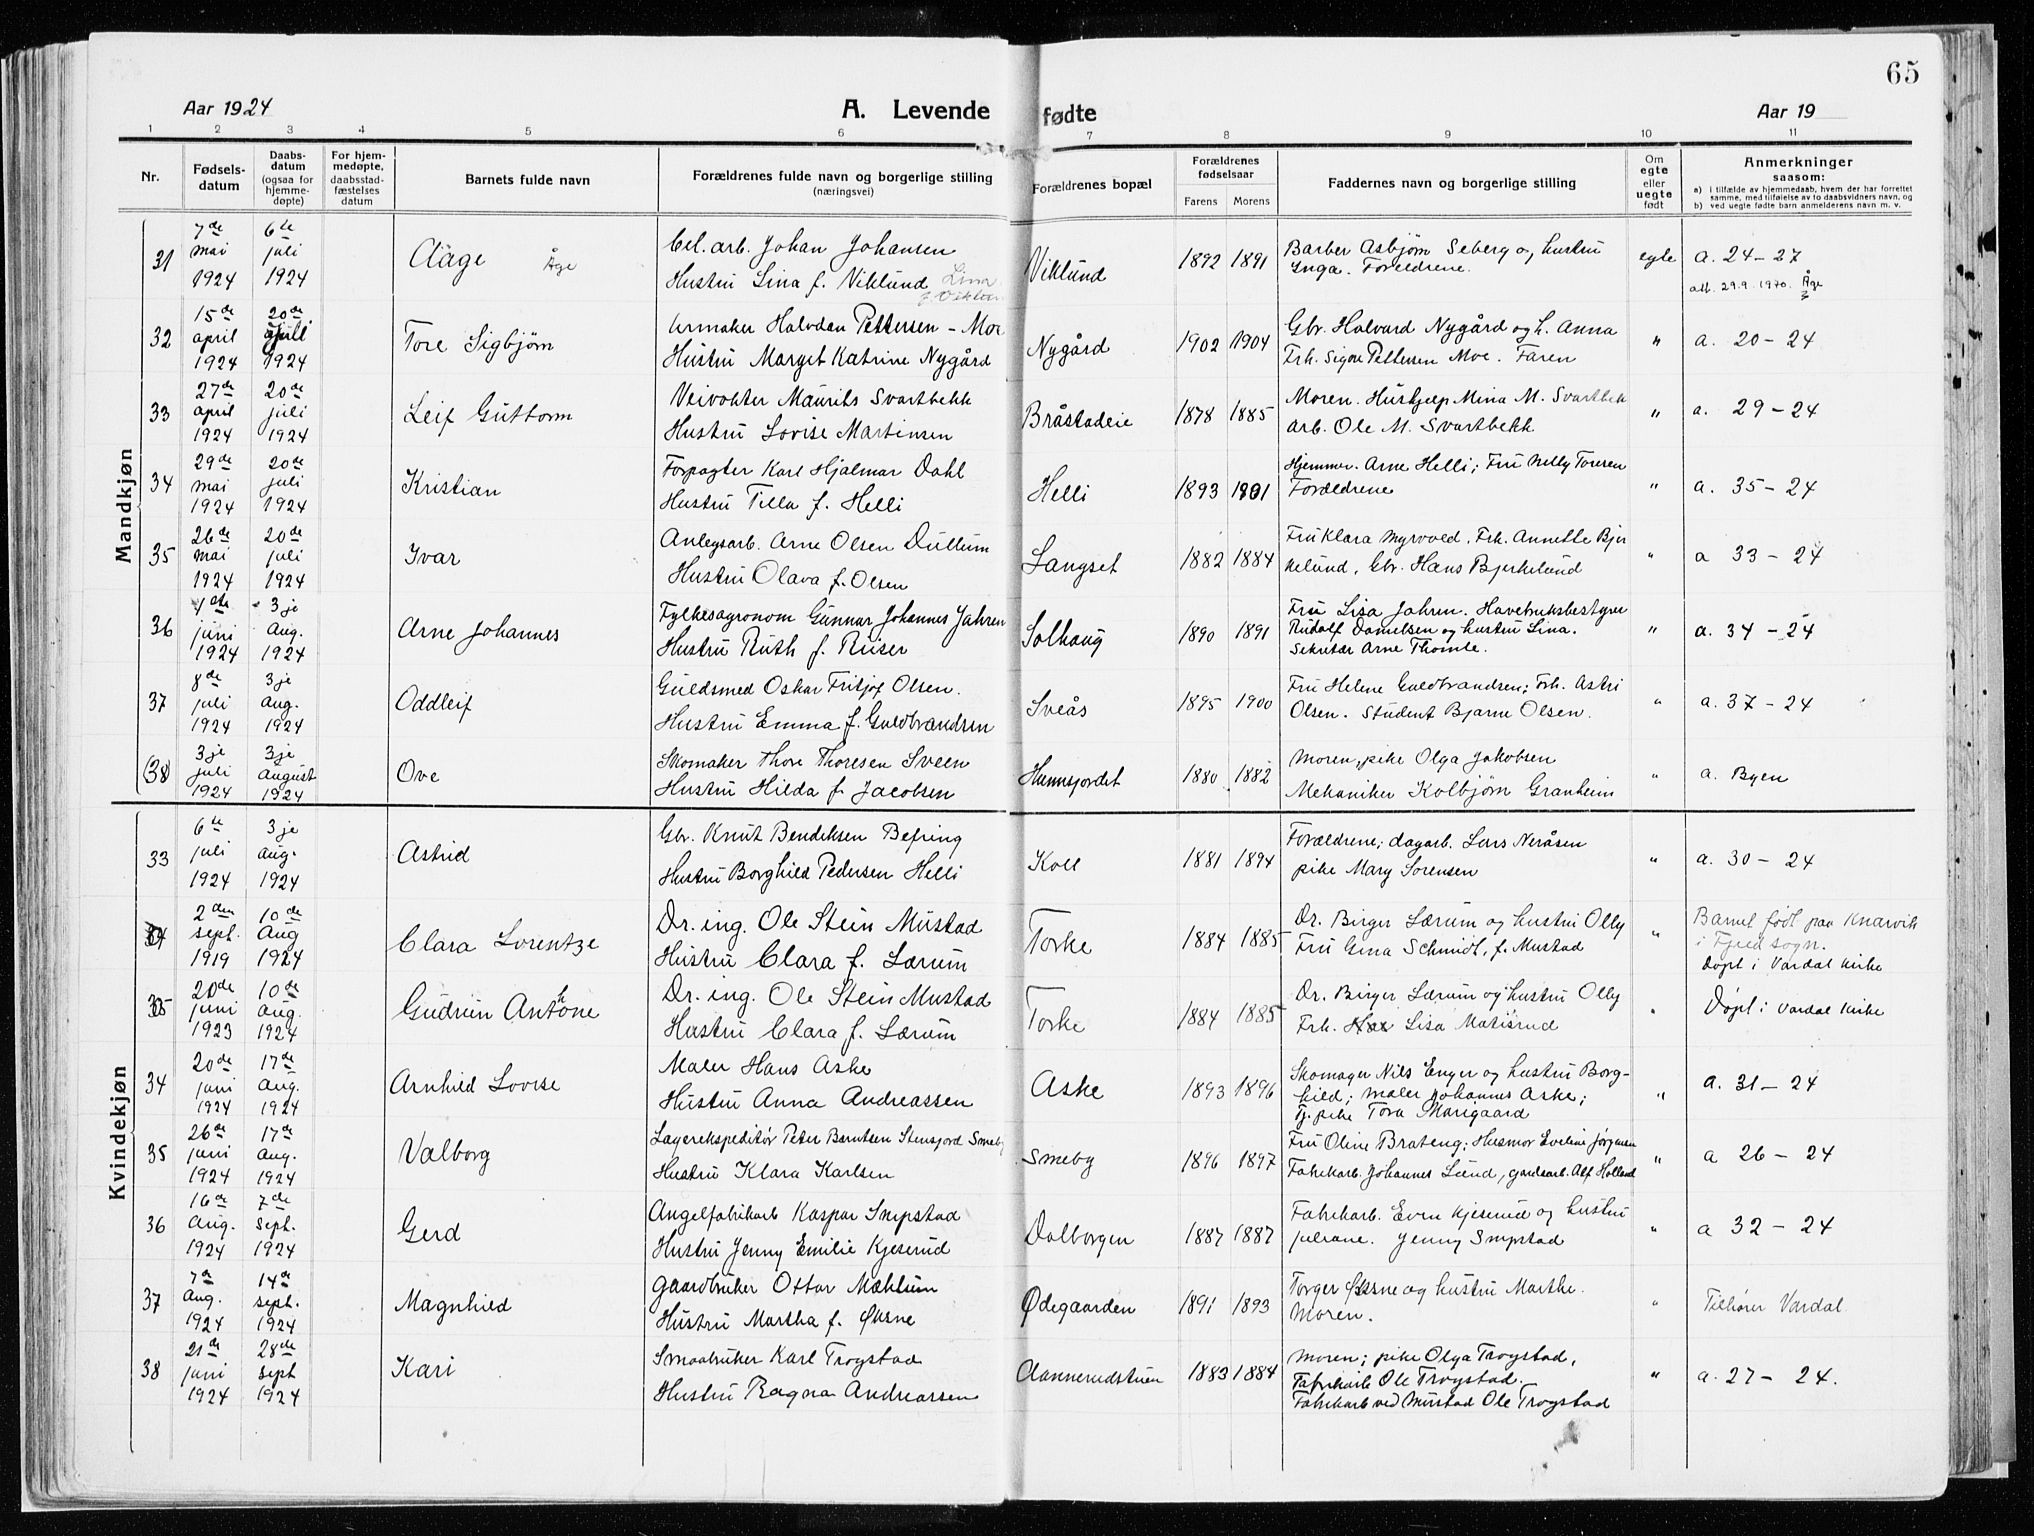 65
Aar 1924
A. Levende fødte
Aar 19
1 2 3 4 5 6 7 8 9 10 11
Nr.
Fødsels-datum
Daabs-datum (ogsaa for hjemme-døpte)
For hjem-medøpte, daabsstad-fæstelses datum
Barnets fulde navn
Forældrenes fulde navn og borgerlige stilling (næringsvei)
Forældrenes bopæl
Forældrenes fødselsaar
Farens Morens
Faddernes navn og borgerlige stilling
Om egte eller uegte født
Anmerkninger saasom:
a) i tilfælde av hjemmedaab, hvem der har forrettet samme, med tilføielse av to daabsvidners navn, og
b) ved uegte fødte barn anmelderens navn m. v.
Mandkjøn
31 7de mai 1924 6te juli 1924 Aage Åge
Cel. arb. Johan Johansen
Hustru Lina f. Viklund
Viklund 1892 1891
Barber Asbjørn Seberg og hustru
Inga. Forældrene.
egte a. 24-27
att. 29.9.1970. Åge
32 15de april 1924 20de juli 1924 Tore Sigbjørn
Urmaker Halvdan Pettersen - Moe
Hustru Marget Katrine Nygård
Nygård 1902 1904
Gbr. Halvard Nygård og h. Anna
Frk. Signe Pettersen Moe. Faren
" a. 20-24
33 27de april 1924 20de juli 1924 Leif Guttorm
Veivokter Maurits Svartbekk
Hustru Lovise Martinsen
Bråstadeie 1878 1885
Moren. Hushjelp Mina M. Svartbek
arb. Ole M. Svartbekk.
" a. 29-24
34 29de mai 1924 20de juli 1924 Kristian
Forpagter Karl Hjalmar Dahl
Hustru Tilla f. Helli
Helli 1893 1901
Hjemmev. Arne Helli; Fru Nelly Toresen
Forældrene
" a. 35-24
35 26de mai 1924 20de juli 1924 Ivar
Anlegsarb. Arne Olsen Dullum
Hustru Olava f. Olsen
Langset 1882 1884
Fru Klara Myrvold. Frk. Annette Bjer
kelund, Gbr. Hans Bjerkelund
" a 33-24
36 1ste juni 1924 3je Aug. 1924 Arne Johannes
Fylkesagronom Gunnar Johannes Jahren
Hustru Ruth f. Riiser
Solhaug 1890 1891
Fru Lisa Jahren. Havebruksbestyrer
Rudolf Danielsen og hustru Lina.
Sekretær Arne Thomle.
" a. 34-24
37 8de juli 1924 3je Aug. 1924 Oddleif
Guldsmed Oskar Fritjof Olsen.
Hustru Emma f. Guldbrandsen
Sveås 1895 1900
Fru Helene Guldbrandsen; Frk. Astri
Olsen. Student Bjarne Olsen.
" a. 37-24
(38) 3je juli 1924 3je August 1924 Ove
Skomaker Thore Thoresen Sveen
Hustru Hilda f. Jacobsen
Hunnsjordet 1880 1882
Moren, pike Olga Jakobsen
Mekaniker Kolbjørn Granheim
" a. Byen
Kvindekjøn
33 6te juli 1924 3je Aug. 1924 Astrid
Gbr. Knut Bendiksen Befring
Hustru Borghild Pedersen Helli
Koll 1881 1894
Forældrene; dagarb. Lars Neråsen
pike Mary Sorensen
" a. 30-24
34 2den sept. 1919 10de Aug 1924 Clara Lorentze
Dr. ing. Ole Stein Mustad
Hustru Clara f. Lærum
Torke 1884 1885
Dr. Birger Lærum og hustru Olly
Fru Gina Schmidt, f. Mustad
" Barnet født paa Knarvik
i sogn.
Døpt i Vardal kirke
35 20de juni 1923 10de Aug. 1924 Gudrun Anthone
Dr. ing. Ole Stein Mustad
Hustru Clara f. Lærum
Torke 1884 1885
Dr. Birger Lærum og hustru Olly
Frk. Lisa Matisrud
" Døpt i Vardal kirke
34 20de juni 1924 17de Aug. 1924 Arnhild Lovise
Maler Hans Aske
Hustru Anna Andreassen
Aske 1893 1896
Skomager Nils Enger og hustru Borg-
hild; maler Johannes Aske;
Tj. pike Tora Marigaard
" a. 31-24
35 26de juni 1924 17de Aug. 1924 Valborg
Lagerekspeditør Peter Berntsen Stensjord Smeby
Hustru Klara Karlsen
Smeby 1896 1897
Fru Oline Brateng; Husmor Eveline Jørgensen
Fabrikarb. Johannes Lund, gardsarb. Alf Holland
" a 26-24
36 16de Aug. 1924 7de Sept. 1924 Gerd
Angelfabrikarb Kaspar Snipstad
Hustru Jenny Emilie Kjeserud
Dalborgen 1887 1887
Fabrikarb. Even Kjeserud og hustru
Juliane. Jenny Snipstad
" a 32-24
37 7de Aug. 1924 14de sept. 1924 Magnhild
Gaardbruker Ottar Mæhlum
Hustru Martha f. Øksne
Ødegaarden 1891 1893
Torger Øksne og hustru Marthe.
Moren.
" Tilhører Vardal
38 21de juni 1924 28de sept 1924 Kari
Smaabruker Karl Trogstad
Hustru Ragna Andreassen
Aannerudstuen 1883 1884
Moren; pike Olga Trogstad,
Fabrikarb Ole Trogstad.
Fabrikarb ved Mustad Ole Trogstad
" a. 27-24.